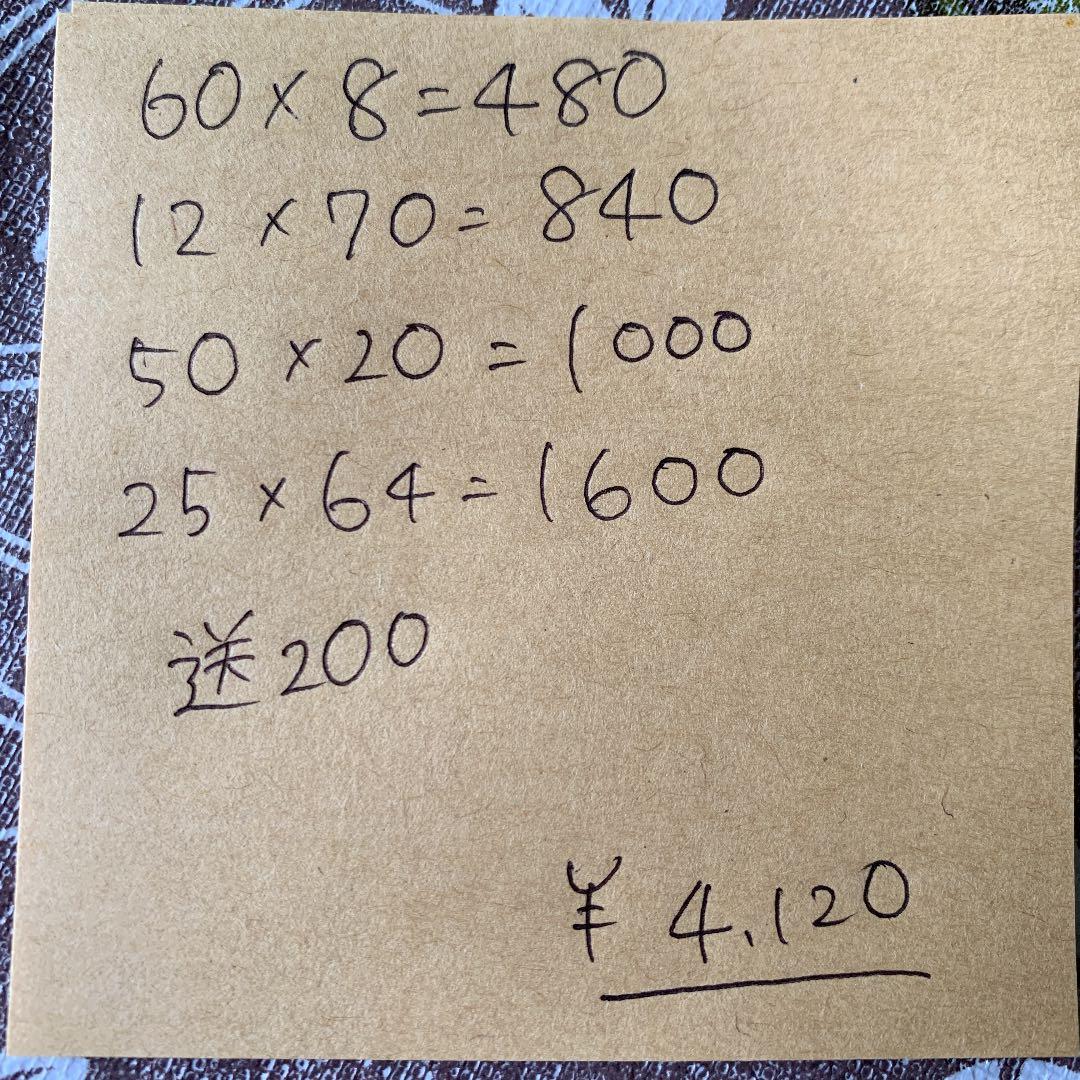 60×8=480
12×70=840
50×20=1000
25×64=1600
送200
¥4,120